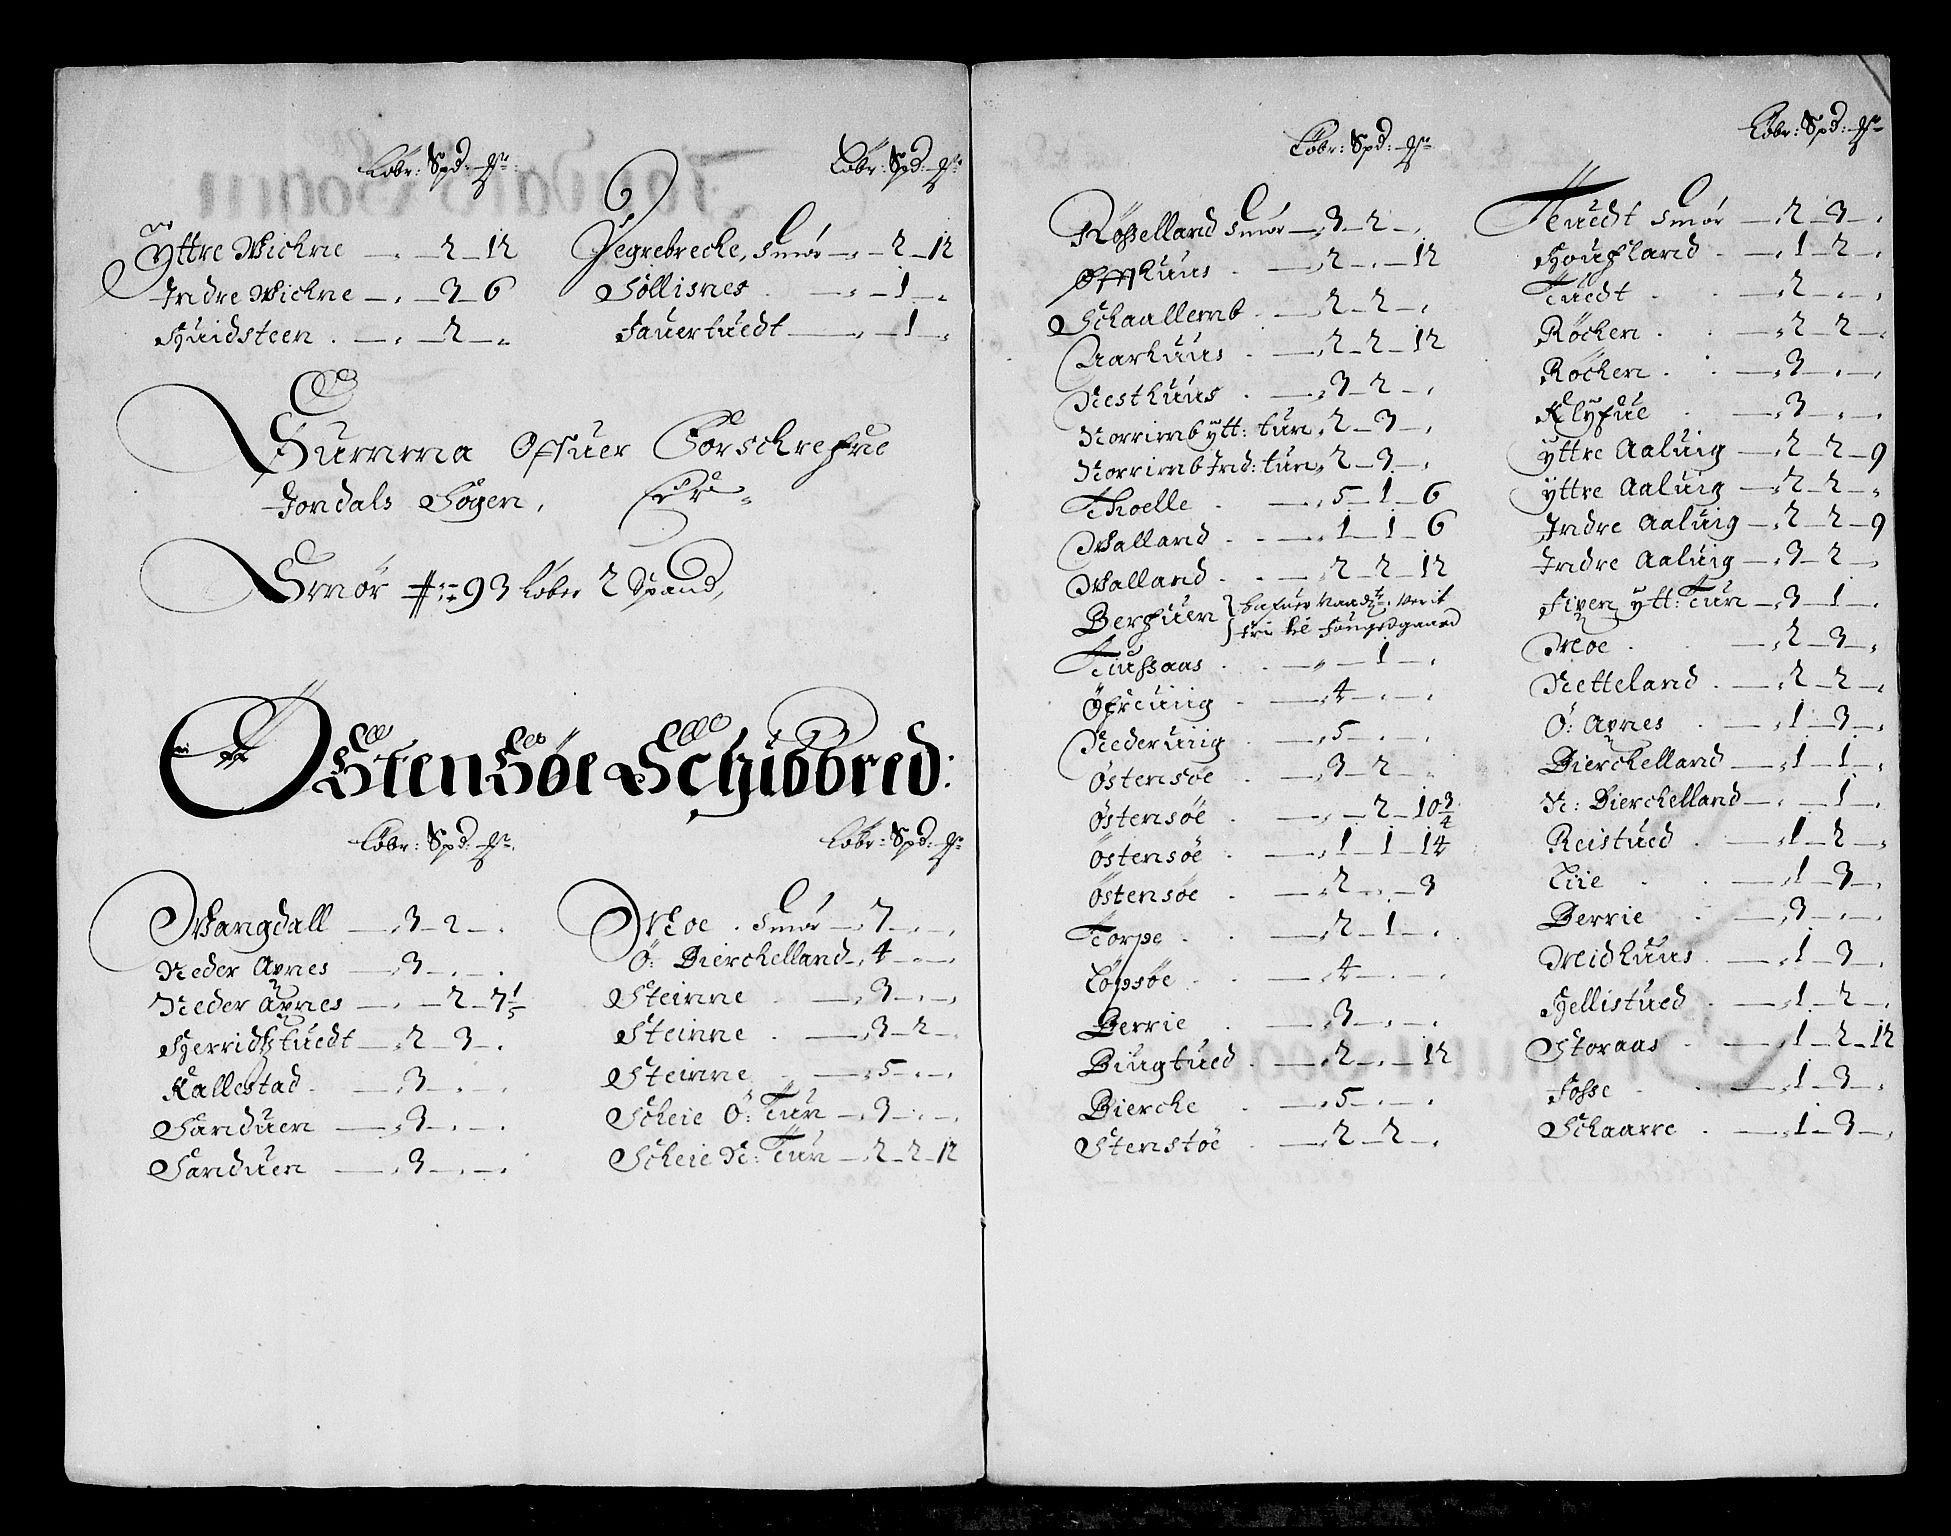 Löbr: Spd: 
Yttre Wichne — „ — 2 — 12
Indre Wichne — „ — 3 — 6
Huidsteen . — „ — 2 — „
Löbr: Spd: 
Hegrebrecke, Smör — „ — 2 — 12
Söllisnes . — „ — 1 — „
Sauertuedt — „ — 1 — „
Summa Offuer Forschrefne
Jondals Sogen,
Smör # 93 Löber 2 Spand,
Östensöe Schibbred:
Löbr: Spd: 
Wangdall — 3 — 2 — „
Neder Axnes — 3 — „ — „
Neder Axnes — „ — 2 — 7 1/5
Herridstuedt — 2 — 3 — „
Kallestad . — 3 — „ — „
Sanduen — 3 — „ — „
Sanduen — 3 — „ — „
Löbr: Spd: 
Moe . Smör — 7 — „ — „
Ö: Bierchelland — 4 — „ — „
Steinne — 3 — „ — „
Steinne . — 3 — 2 — „
Steinne — 5 — „ — „
Scheie Ö: Tun — 3 — „ — „
Scheie N: Tun — 2 — 2 — 12
Löbr: Spd: 
Rösselland Smör — 3 — 2 — „
Öffhuus . — 2 — „ — 12
Schaallemb . — 2 — 2 — „
Aarhuus . — 2 — 2 — 12
Nesthuus . — 3 — 2 — „
Norrimb ytt: tun — 2 — 3 — „
Norrimb Ind: tun — 2 — 3 — „
Thoelle . — 5 — 1 — 6
Walland . — 1 — 1 — 6
Walland . — 2 — 2 — 12
Berfuen
Tiussaas . — „ — 1 — „
Öfreuiig . — 4 — „ — „
Nederuiig — 5 — „ — „
Östensöe . — 3 — 2 — „
Östensöe . — „ — 2 — 10 3/4
Östensöe . — 1 — 1 — 14
Östensöe . — 2 — „ — 3
Torpe . — 2 — 1 — „
Löpsöe . — 4 — „ — „
Berrie . — 3 — „ — „
Bingtued — 2 — „ — 12
Bierche . — 5 — „ — „
Stenstöe . — 2 — 2 — „
Löbr: Spd: 
Tuedt Smör — 2 — 3 — „
Hougland . — 1 — 2 — „
Tuedt . — 2 — „ — „
Röchen . — 2 — 2 — „
Röchen . — 3 — „ — „
Klyfue . — 3 — „ — „
yttre Aaluig — 2 — 2 — 9
yttre Aaluig — 2 — 2 — „
Indre Aaluig — 2 — 2 — 9
Indre Aaluig — 3 — 2 — „
Fixen ytt: Tun — 3 — 1 — „
Moe . — 2 — 3 — „
Netteland . — 2 — 2 — „
Ö: Axnes . — 1 — 3 — „
Bierchelland — 1 — 1 — „
N: Bierchelland — „ — 1 — „
Reistued . — 1 — 2 — „
Liie . — 1 — 3 — „
Berrie . — 3 — „ — „
Midhuus . — 1 — 3 — „
Hellistued . — 1 — 2 — „
Storaas . — 1 — 2 — 12
Fosse . — 1 — 3 — „
Schaarre . — 1 — 3 — „